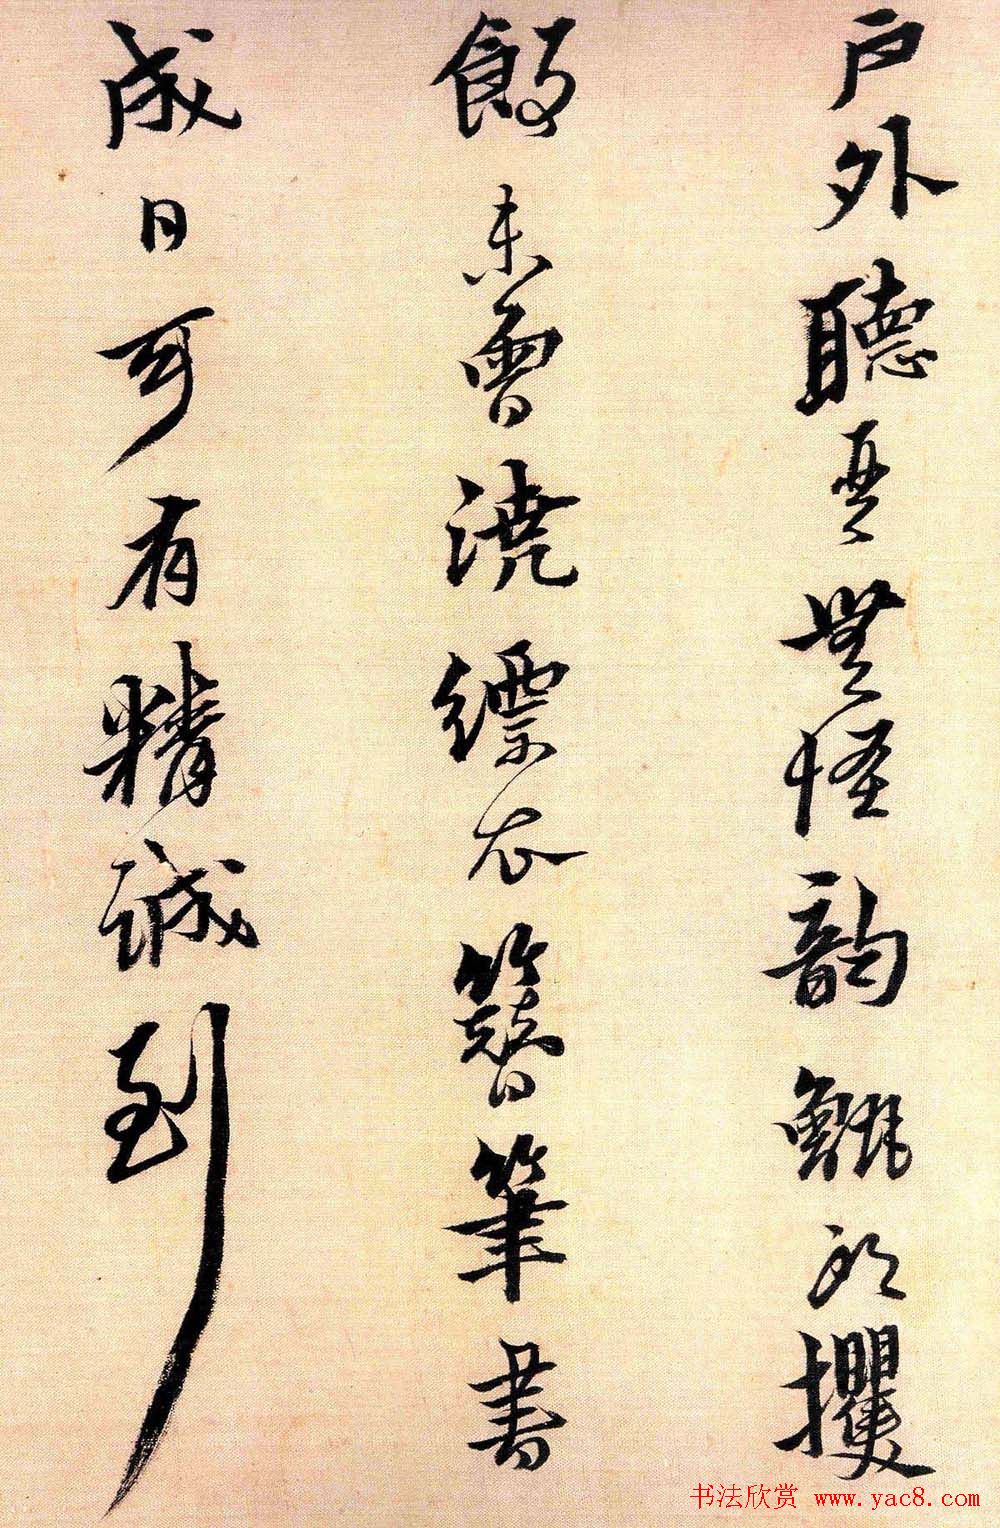 户外聽無怪韵攫
未曾澆縹衣簪筆書
成日可有精誠到
书法欣赏 www.yac8.com